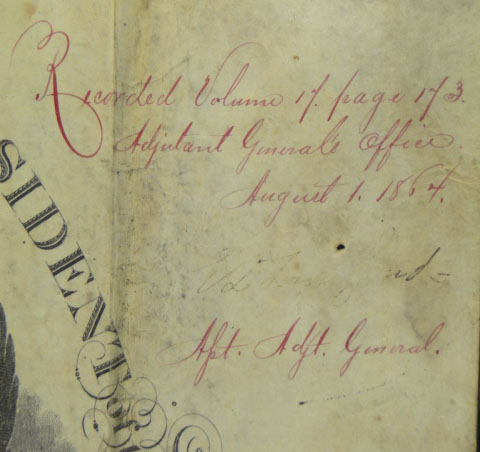 Recorded Volume 17. page 173.
Adjutant General's Office.
August 1. 1864.
Asst. Adjt. General.
SIDENT of